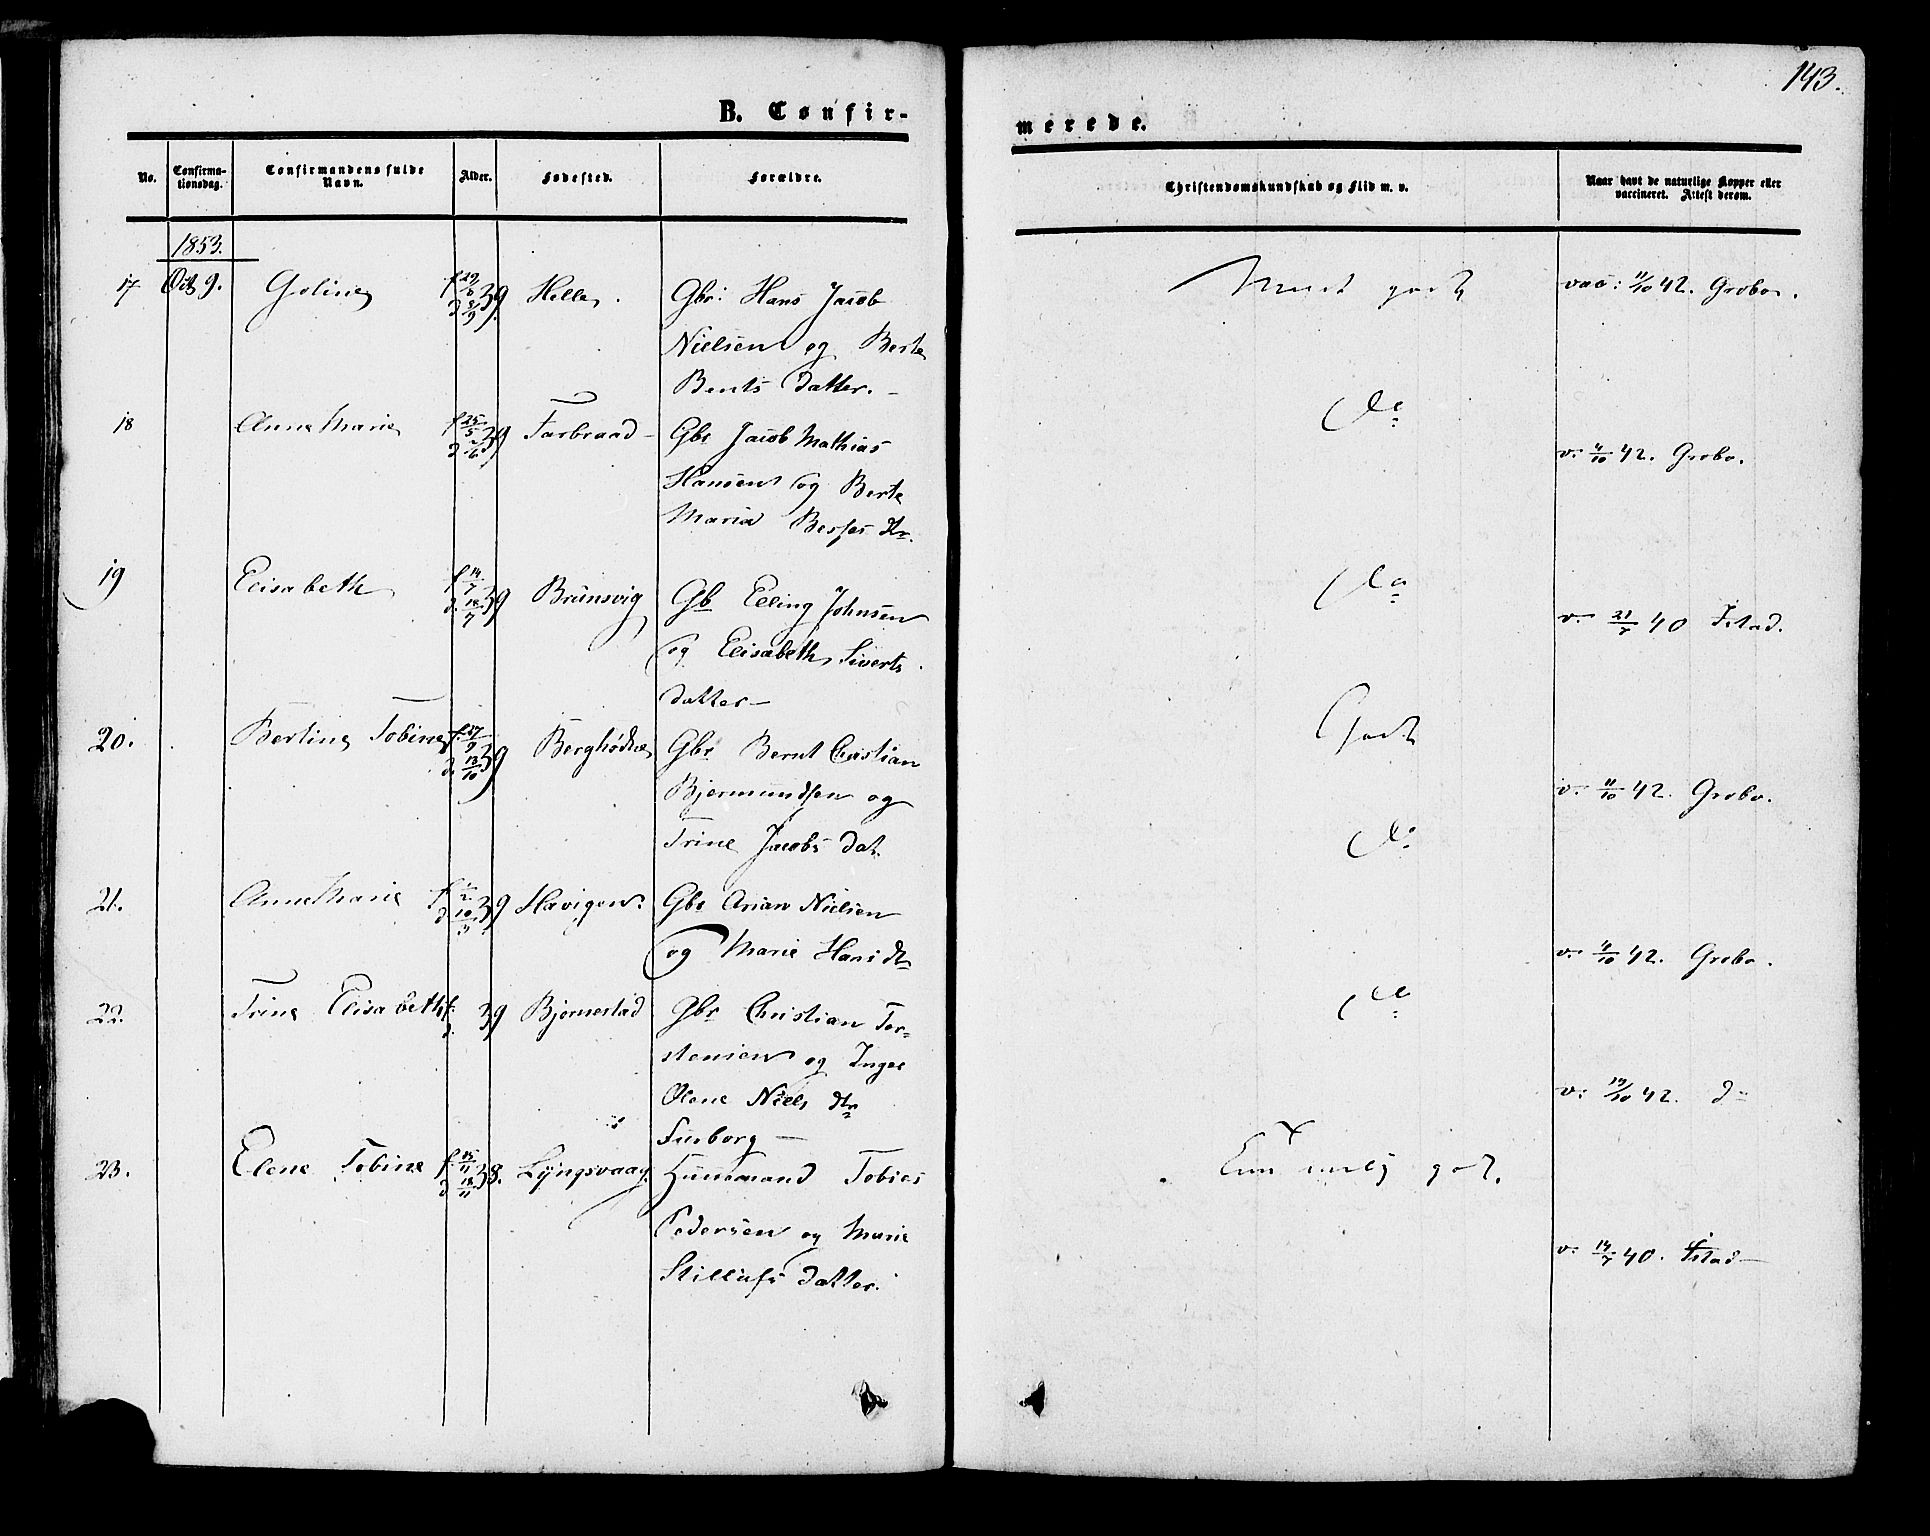 143.
B. Confirmerede.
No. Confirmationsdag. Confirmandens fulde Navn. Alder. Fødested. Forældre. Christendomskundskab og Flid m. v. Naar havt de naturlige Kopper eller vaccineret. Attest derom.
1853.
17 Oct 9. Goline 39 Helle. Gbr: Hans Jacob
Nielsen og Berte
Bents datter. –
vac: 11/10 42. Grobo.
18 Anne Marie f 25/5 39 Gbr Jacob Mathias
Hansen og Berte
Maria
v. 11/10 42. Grobo.
19 Elisabeth f 14/7 d. 39 Brunsvig Gb Elling Johnsen
og Elisabeth Siverts
datter –
do
v. 21/7 40
20. Bertine Tobine f. d. 13/10 39 Gbr Bernt Christian
og
Trine Jacobs dat.
Godt
v. 11/10 42. Grobo.
21. Anne Marie f d 10/3 39 Gbr Arian Nielsen
og Marie Hans dtr
do
v. 11/10 42. Grobo.
22. Trine Elisabeth f. d. 39 Bjørnestad Gbr Christian Tor-
stensen og Inger
Olene Niels dtr
do
v. 19/10 42. do
23. Elene Tobine f. 15/11 d 18/11 38. Lyngsvaag. Huusmand Tobias
Pedersen og Marie
datter.
god.
v. 14/7 40.